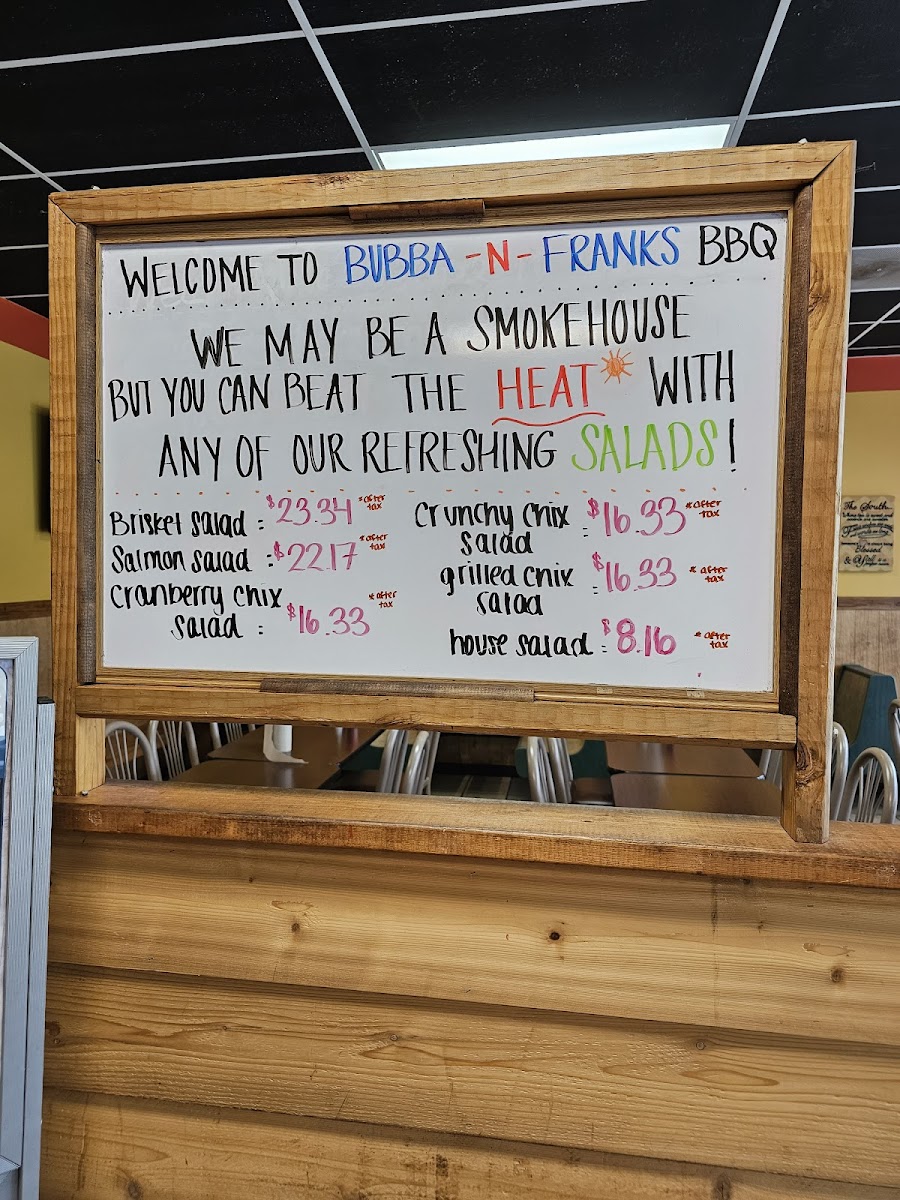 WELCOME TO BUBBA-N-FRANKS BBQ
WE MAY BE A SMOKEHOUSE
BUT YOU CAN BEAT THE HEAT WITH
ANY OF OUR REFRESHING SALADS!
Brisket salad : $23.34 *after tax
Salmon salad : $22.17 *after tax
cranberry chix
salad : $16.33 *after tax
crunchy chix
salad : $16.33 *after tax
grilled chix
salad : $16.33 *after tax
house salad : $8.16 *after tax
The South...
Blessed
& Y'all